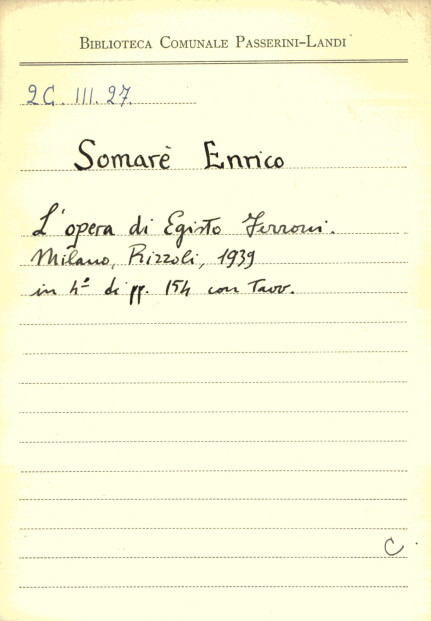 BIBLIOTECA COMUNALE PASSERINI-LANDI
2C. III. 27.
Somarè Enrico
L'opera di Egisto Ferroni.
Milano, Rizzoli, 1939
in 4º di pp. 154 con Tavv.
C